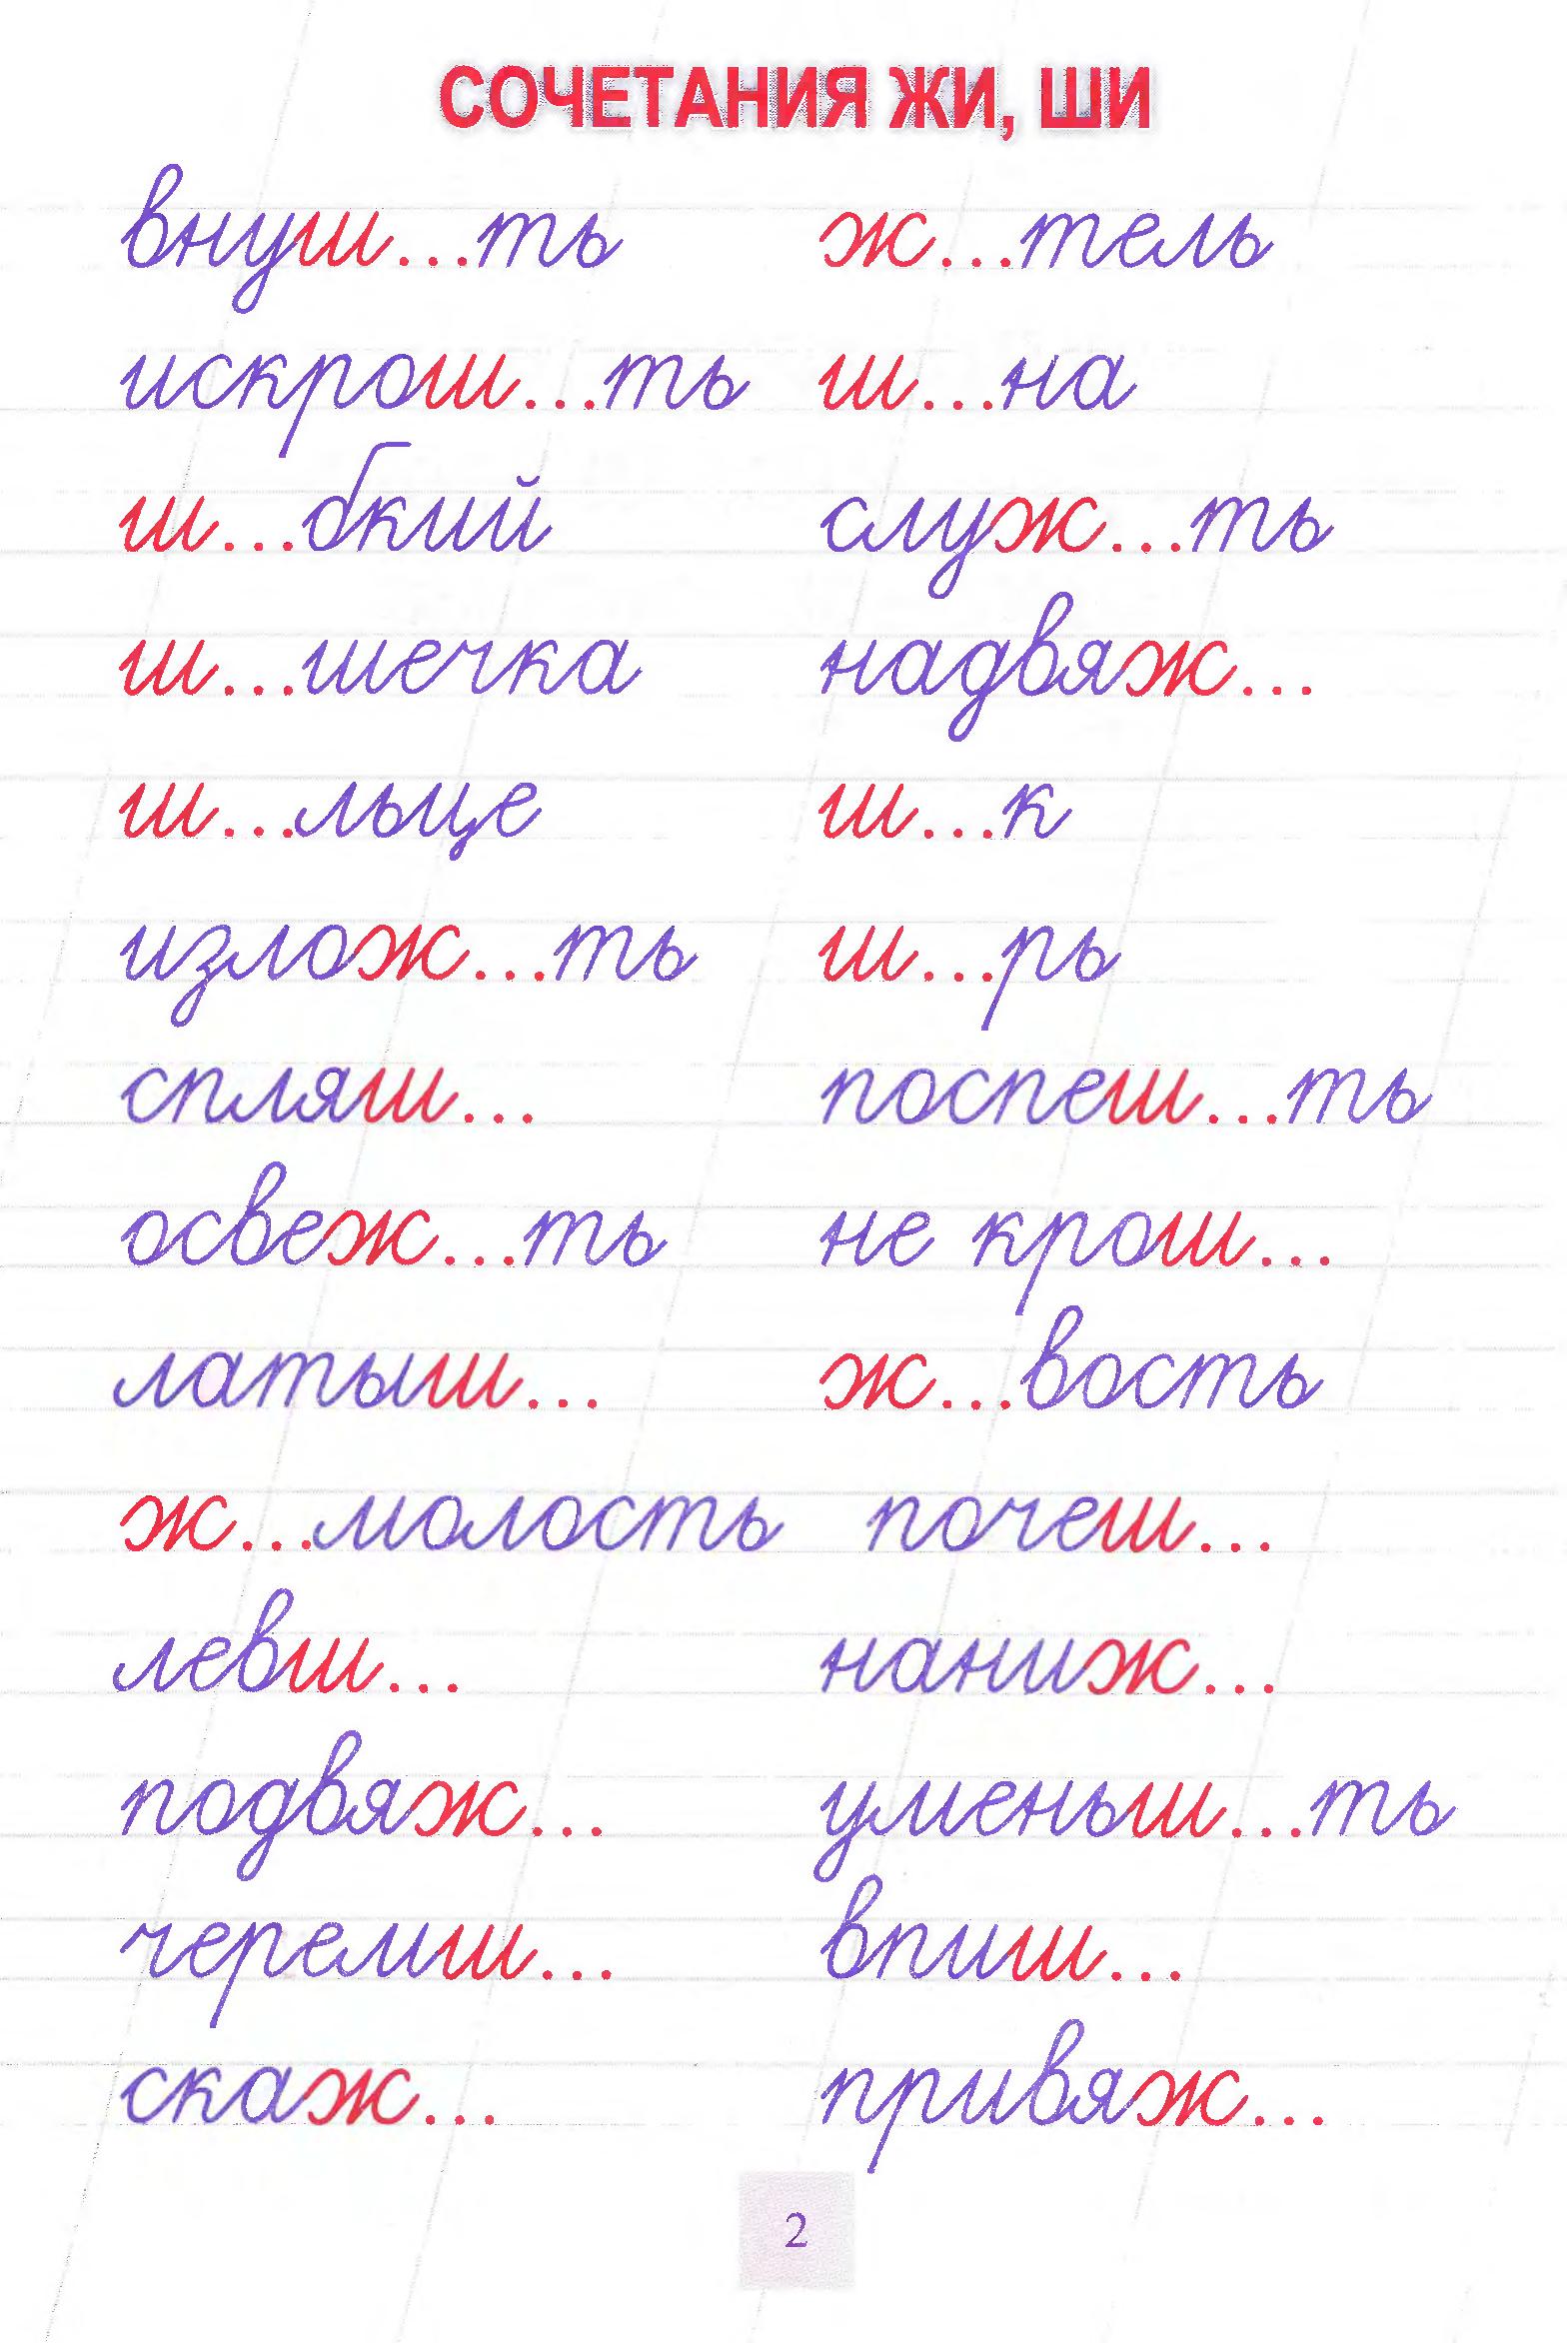 СОЧЕТАНИЯ ЖИ, ШИ
внуш...ть ж...тель
искрош...ть ш...на
ш...бкий служ...ть
ш...шечка надвяж...
ш...льце ш...к
излож...ть ш...рь
спляш... поспеш...ть
освеж...ть не крош...
латыш... ж...вость
ж...молость почеш...
левш... наниж...
подвяж... уменьш...ть
черемш... впиш...
скаж... привяж...
2